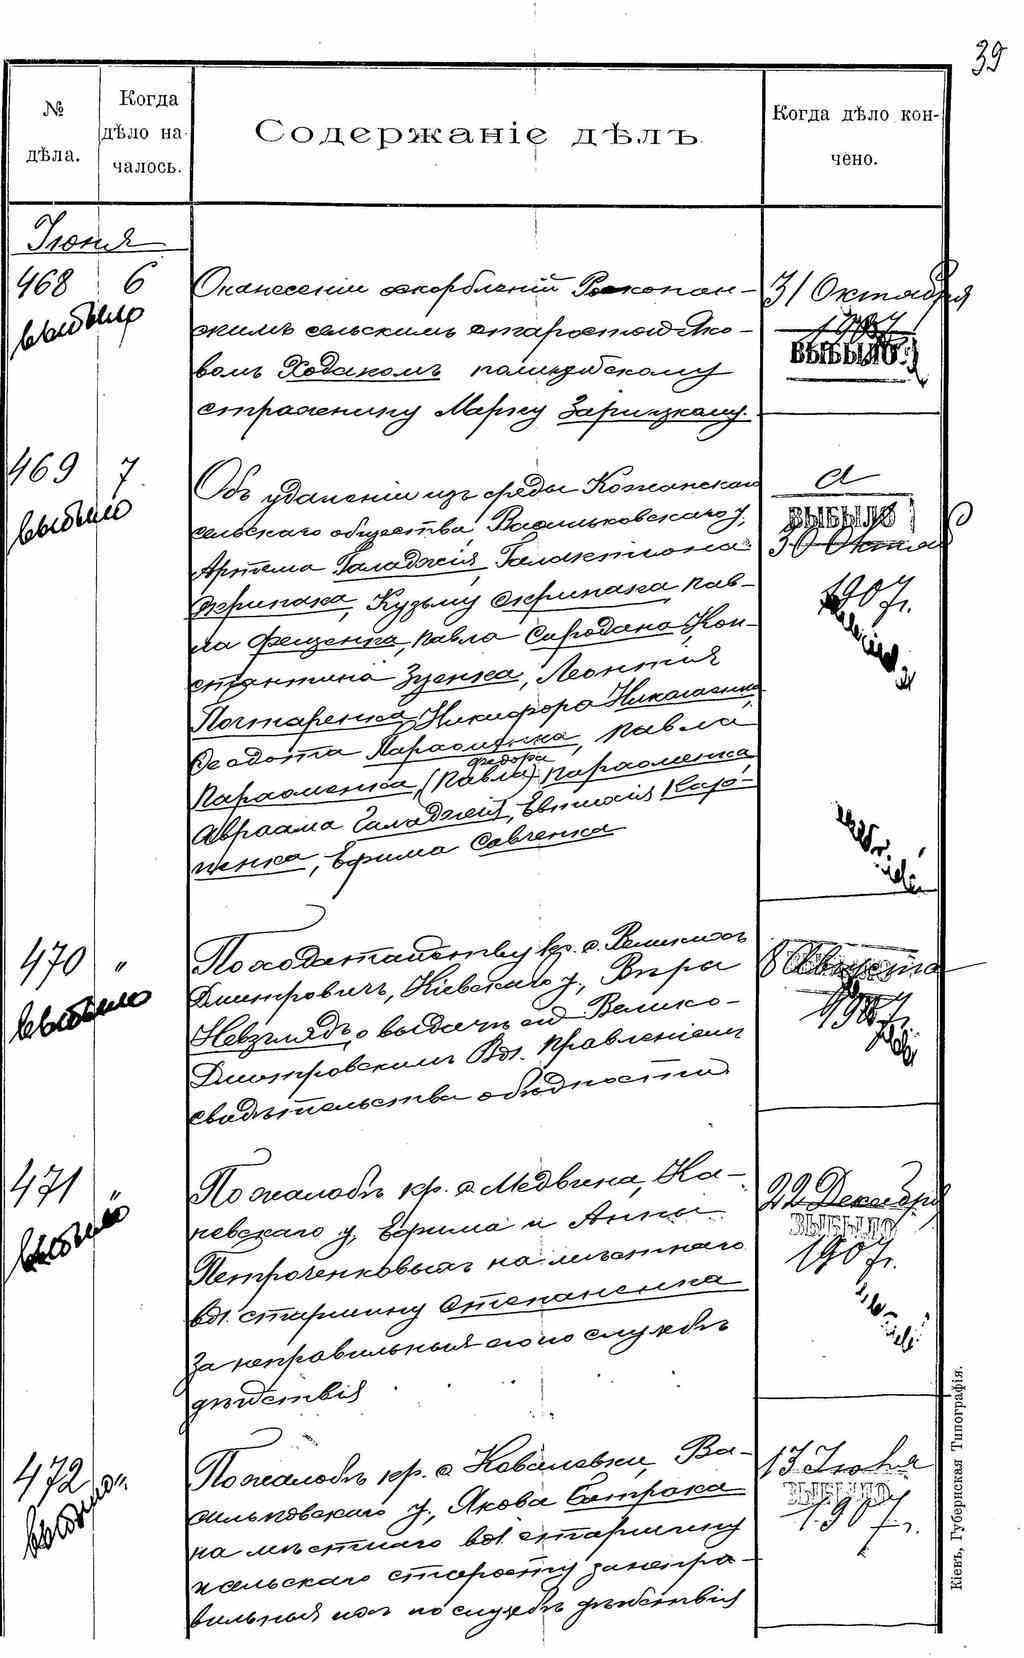 39
№ дѣла.
Когда дѣло началось.
Содержаніе дѣлъ.
Когда дѣло кончено.
Іюня
468 6
выбыло
О нанесеніи оскорбленій Роскопан-
скимъ сельскимъ старостою Яко-
вомъ Ходакомъ полицейскому
стражнику Марку Зарицкому.
31 Октября
1907
ВЫБЫЛО
469 7
выбыло
Объ удаленіи изъ среды Кожанскаго
сельскаго общества, Васильковскаго у,
Артема Галаджія, Галактіона
Скрипака, Кузьму Скрипака, Пав-
ла Фещенка, Павла Сородана, Кон-
стантина Зуенка, Леонтія
Почтаренка, Никифора Николаенка
Ѳеодота Параоменка, Павла
Параоменка, (Павла) Федора Параоменка,
Авраама Галаджія, Евтихія Кар-
пенка, Ефима Савченка
ВЫБЫЛО
30 Октяб
1907 г.
470 "
выбыло
По ходатайству кр. с. Великихъ
Дмитровичъ, Кіевскаго у, Вѣры
Невзглядъ о выдачѣ ей Велико-
Дмитровскимъ Вол. Правленіемъ
свидѣтельства о бѣдности
8 Августа
1907
471 "
выбыло
По жалобѣ кр. с. Медвина, Ка-
невскаго у, Ефима и Анны
Петроченковыхъ на мѣстнаго
вол. старшину Степаненка
за неправильныя его по службѣ
дѣйствія
22 Декабря
ВЫБЫЛО
1907 г.
472 "
выбыло
По жалобѣ кр. с. Ковалевки, Ва-
сильковскаго у, Якова Батрака
на мѣстнаго вол. старшину
и сельскаго старосту за непра-
вильныя ихъ по службѣ дѣйствія
13 Іюня
ВЫБЫЛО
1907 г.
Кіевъ, Губернская Типографія.